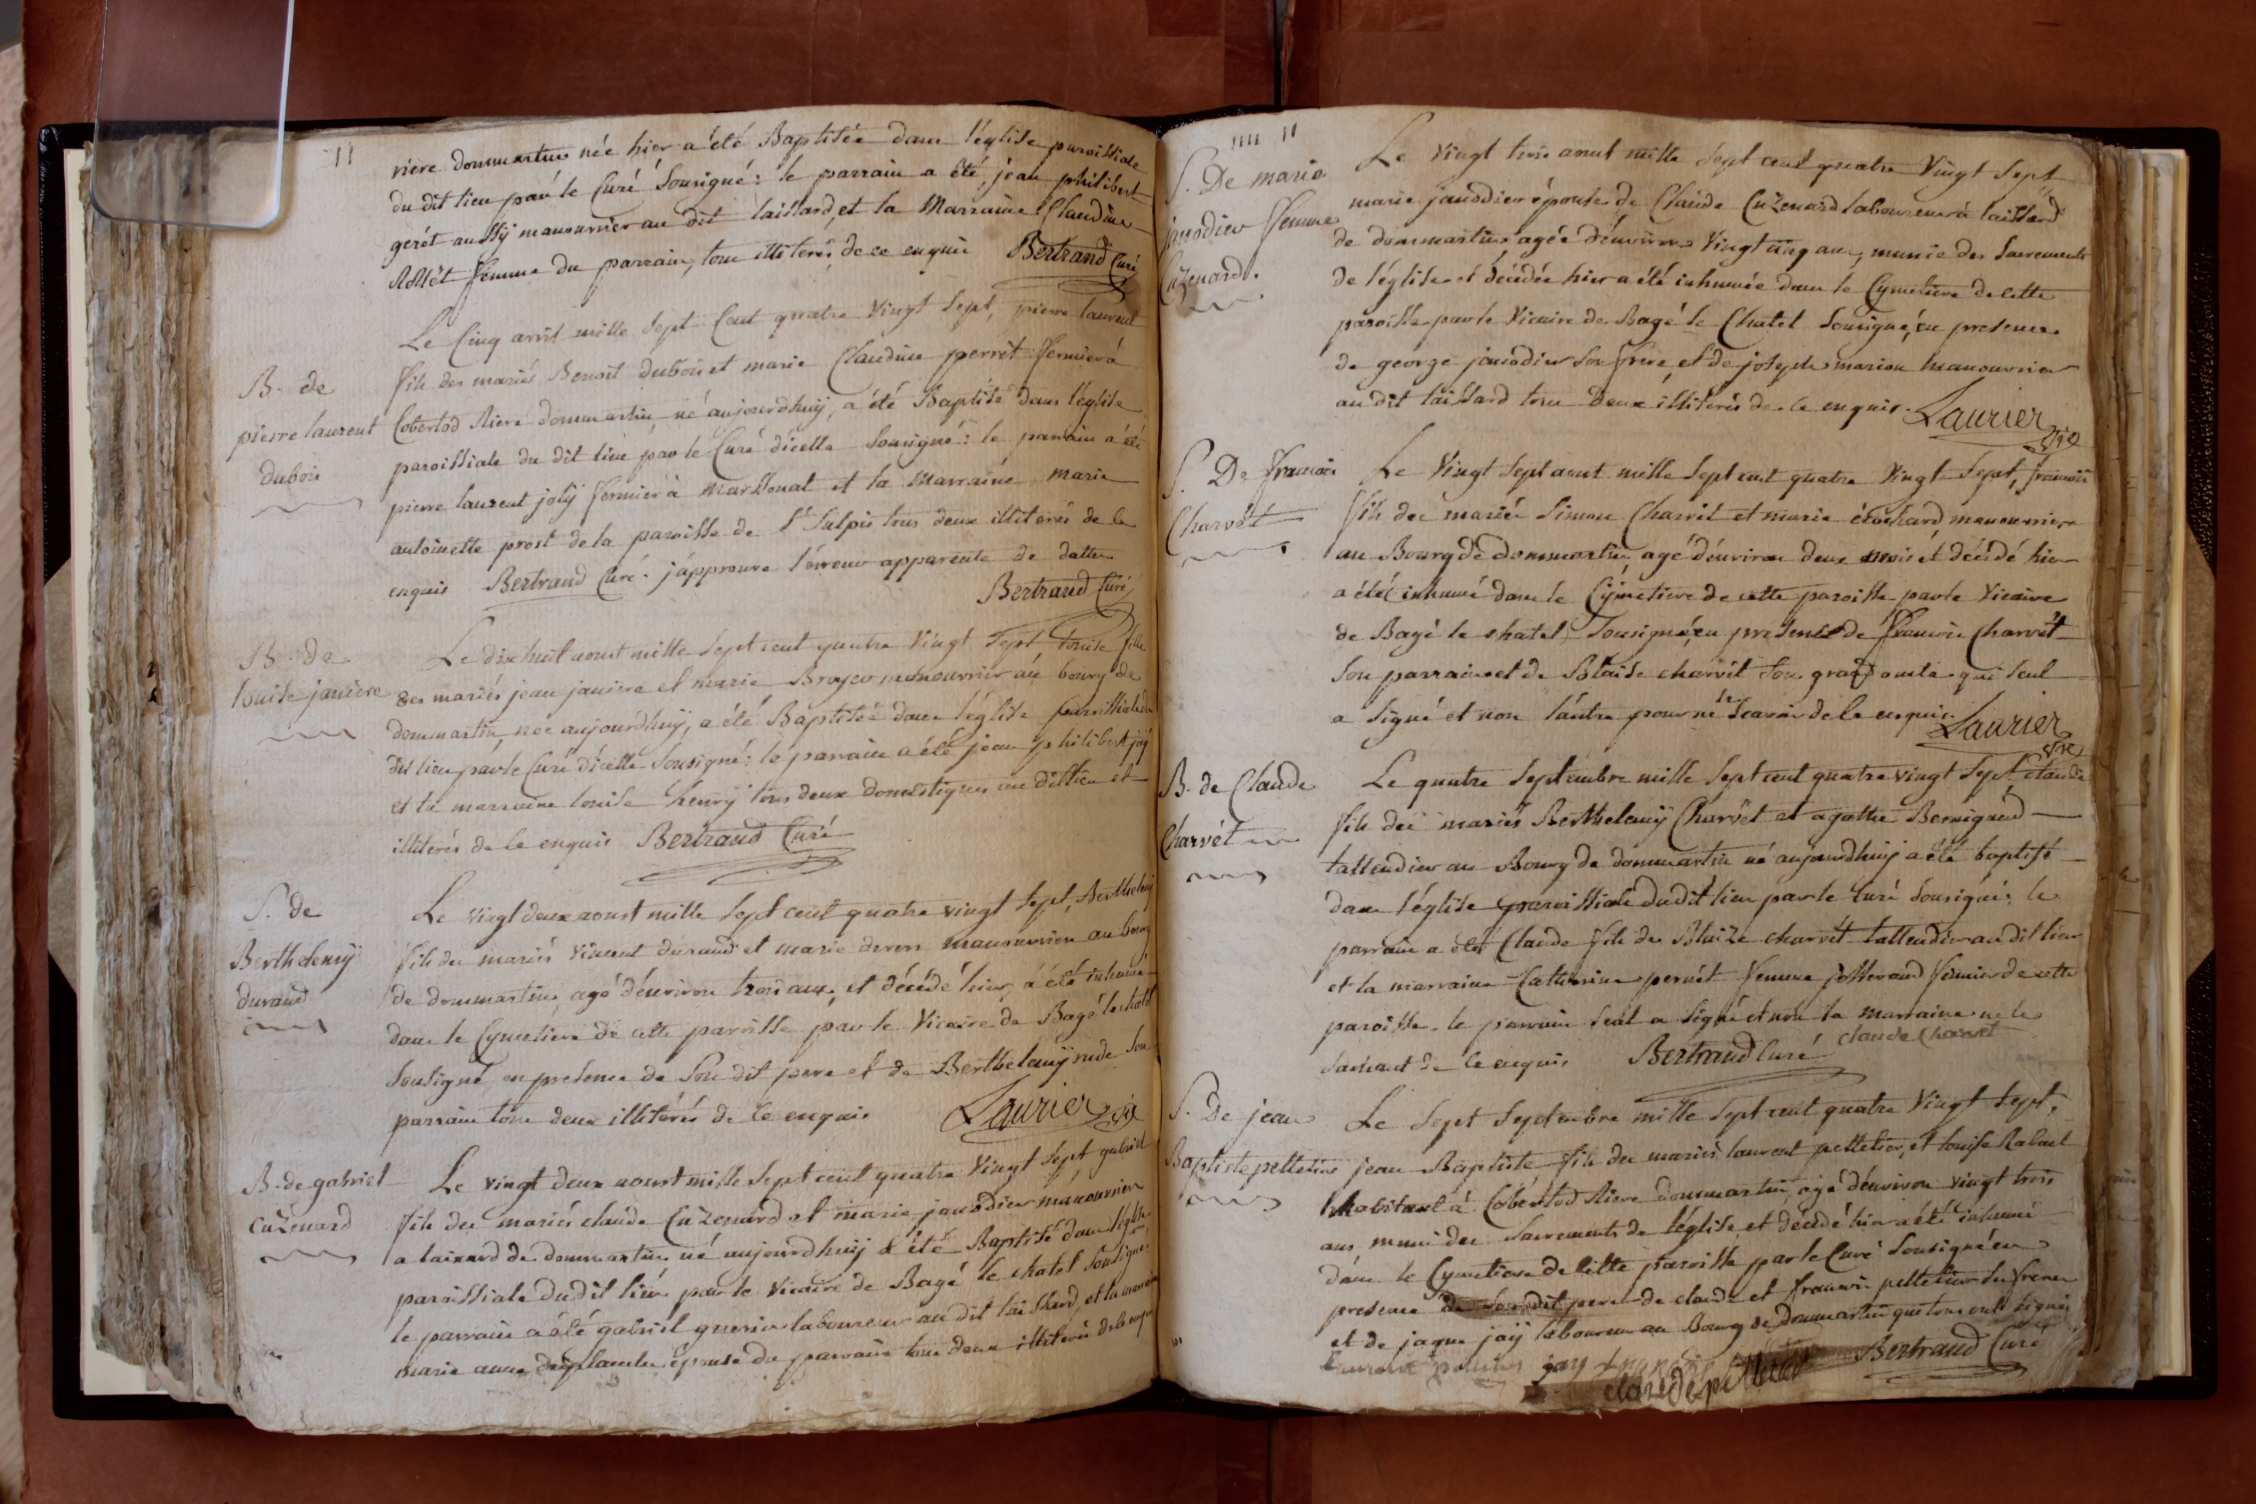 11
riere dommartin née hier a été Baptisée dans l'église paroissiale
du dit lieu par le Curé Sousigné : le parrain a été jean philibert
gerét aussÿ manouvrier au dit laissard, et la Marraine Claudine
femme du parrain, tous illiterés de ce enquis Bertrand Curé
Le Cinq avril mille Sept Cent quatre Vingt Sept, pierre laurent
B. de
pierre laurent
dubois
fils des mariés Benoit dubois et marie Claudine perrét fermier à
Cobertod Riere dommartin, né aujourdhuÿ, a été Baptisé dans l'église
paroissiale du dit lieu par le Curé d'icelle Sousigné : le parrain a été
pierre laurent jolÿ fermier à et la Marraine marie
antoinette prost de la paroisse de St Sulpis tous deux illiterés de ce
enquis Bertrand Curé. j'approuve l'erreur apparente de datte
Bertrand Curé
B. de
louise janiere
Le dix huit aoust mille Sept cent quatre Vingt Sept, louise fille
des mariés jean janiere et marie Broyer manouvrier au bourg de
dommartin, née aujourdhuÿ, a été Baptisée dans l'église paroissiale du
dit lieu par le Curé d'icelle Sousigné : le parrain a été jean philibert jaÿ
et la marraine louise henrÿ tous deux domestiques au dit lieu et
illiterés de ce enquis Bertrand Curé
S. de
Berthelemÿ
durand
Le vingt deux aoust mille Sept cent quatre vingt Sept, Berthelemÿ
fils des mariés Vincent durand et marie manouvrier au bourg
de dommartin, agé d'environ trois ans, et décédé hier, a été inhumé
dans le Cymetiere de cette paroisse par le Vicaire de Bagé le chatel
Sousigné, en presence de Son dit pere et de Berthelemÿ rude Son
parrain tous deux illitérés de ce enquis Laurier vre
B. de gabriel
Cuzenard
Le vingt deux aoust mille Sept cent quatre Vingt Sept gabriel
fils des mariés claude Cuzenard et marie janodier manouvrier
a laissard de dommartin, né aujourdhuÿ a été Baptisé dans l'église
paroissiale du dit lieu par le Vicaire de Bagé le chatel Sousigné
le parrain a été gabriel guerin laboureur au dit laissard, et la marraine
marie anne épouse du parrain tous deux illiterés de ce enquis
11
S. De marie
janodier femme
Cuzenard.
Le Vingt trois aout mille Sept cent quatre Vingt Sept
marie janodier épouse de Claude Cuzenard laboureur à laissard
de dommartin, agée d'environ Vingt cinq ans, munie des Sacrements
de l'église et décédée hier a été inhumée dans le Cymetiere de cette
paroisse par le Vicaire de Bagé le Chatel Sousigné, en presence
de george janodier Son frere, et de joseph marion manouvrier
au dit laissard tous Deux illiterés de ce enquis. Laurier
vre
S. De francois
Charvét
Le Vingt Sept aout mille Sept cent quatre Vingt Sept, francois
fils des mariés Simon Charvét et marie manouvrier
au Bourg de dommartin, agé d'environ deux mois et décédé hier
a été inhumé dans le Cÿmetiere de cette paroisse par le Vicaire
de Bagé le chatel, Sousigné, en presence de francois Charvét
Son parrain et de Blaise charvét Son grand oncle qui seul
a Signé et non l'autre pour ne le Scavoir de ce enquis Laurier
vre
B. de Claude
Charvét
Le quatre Septembre mille Sept cent quatre vingt Sept Claude
fils des mariés Berthelemÿ Charvét et agathe
taillandier au Bourg de dommartin né aujourdhuÿ a été baptisé
dans l'église paroissiale du dit lieu par le curé Sousigné : le
parrain a été Claude fils de Blaize charvét taillandier au dit lieu
et la marraine Catherine perrét femme fermier de cette
paroisse. le parrain Seul a Signé et non la marraine ne le
sachant de ce enquis Bertrand Curé claude Charvet
S. De jean
Baptiste pelletier
Le Sept Septembre mille Sept cent quatre Vingt Sept,
jean Baptiste fils des mariés laurent pelletier et louise
habitant à Cobertod Riere dommartin, agé d'environ vingt trois
ans muni des Sacrements de l'église et décédé hier a été inhumé
dans le Cymetiere de cette paroisse par le Curé Sousigné en
presence de Son dit pere de claude et francois pelletier Ses freres
et de jaque jaÿ laboureur au Bourg de Dommartin qui tous ont signés
jaÿ Bertrand Curé
claude pelletier